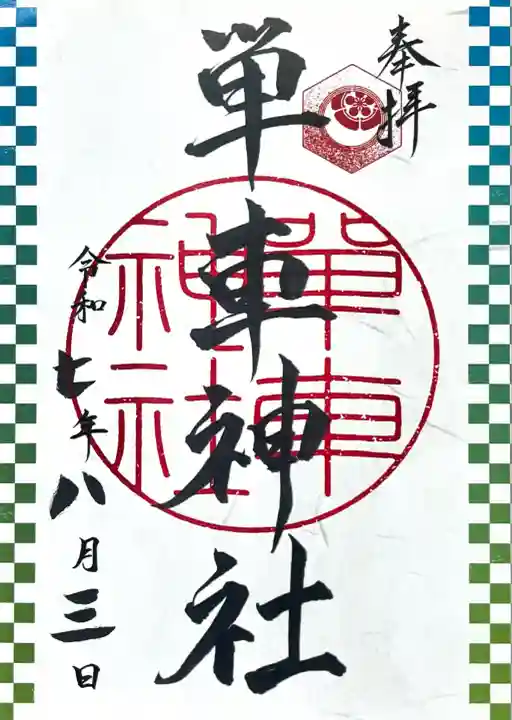 奉拝
単車神社
單車神社
令和七年八月三日